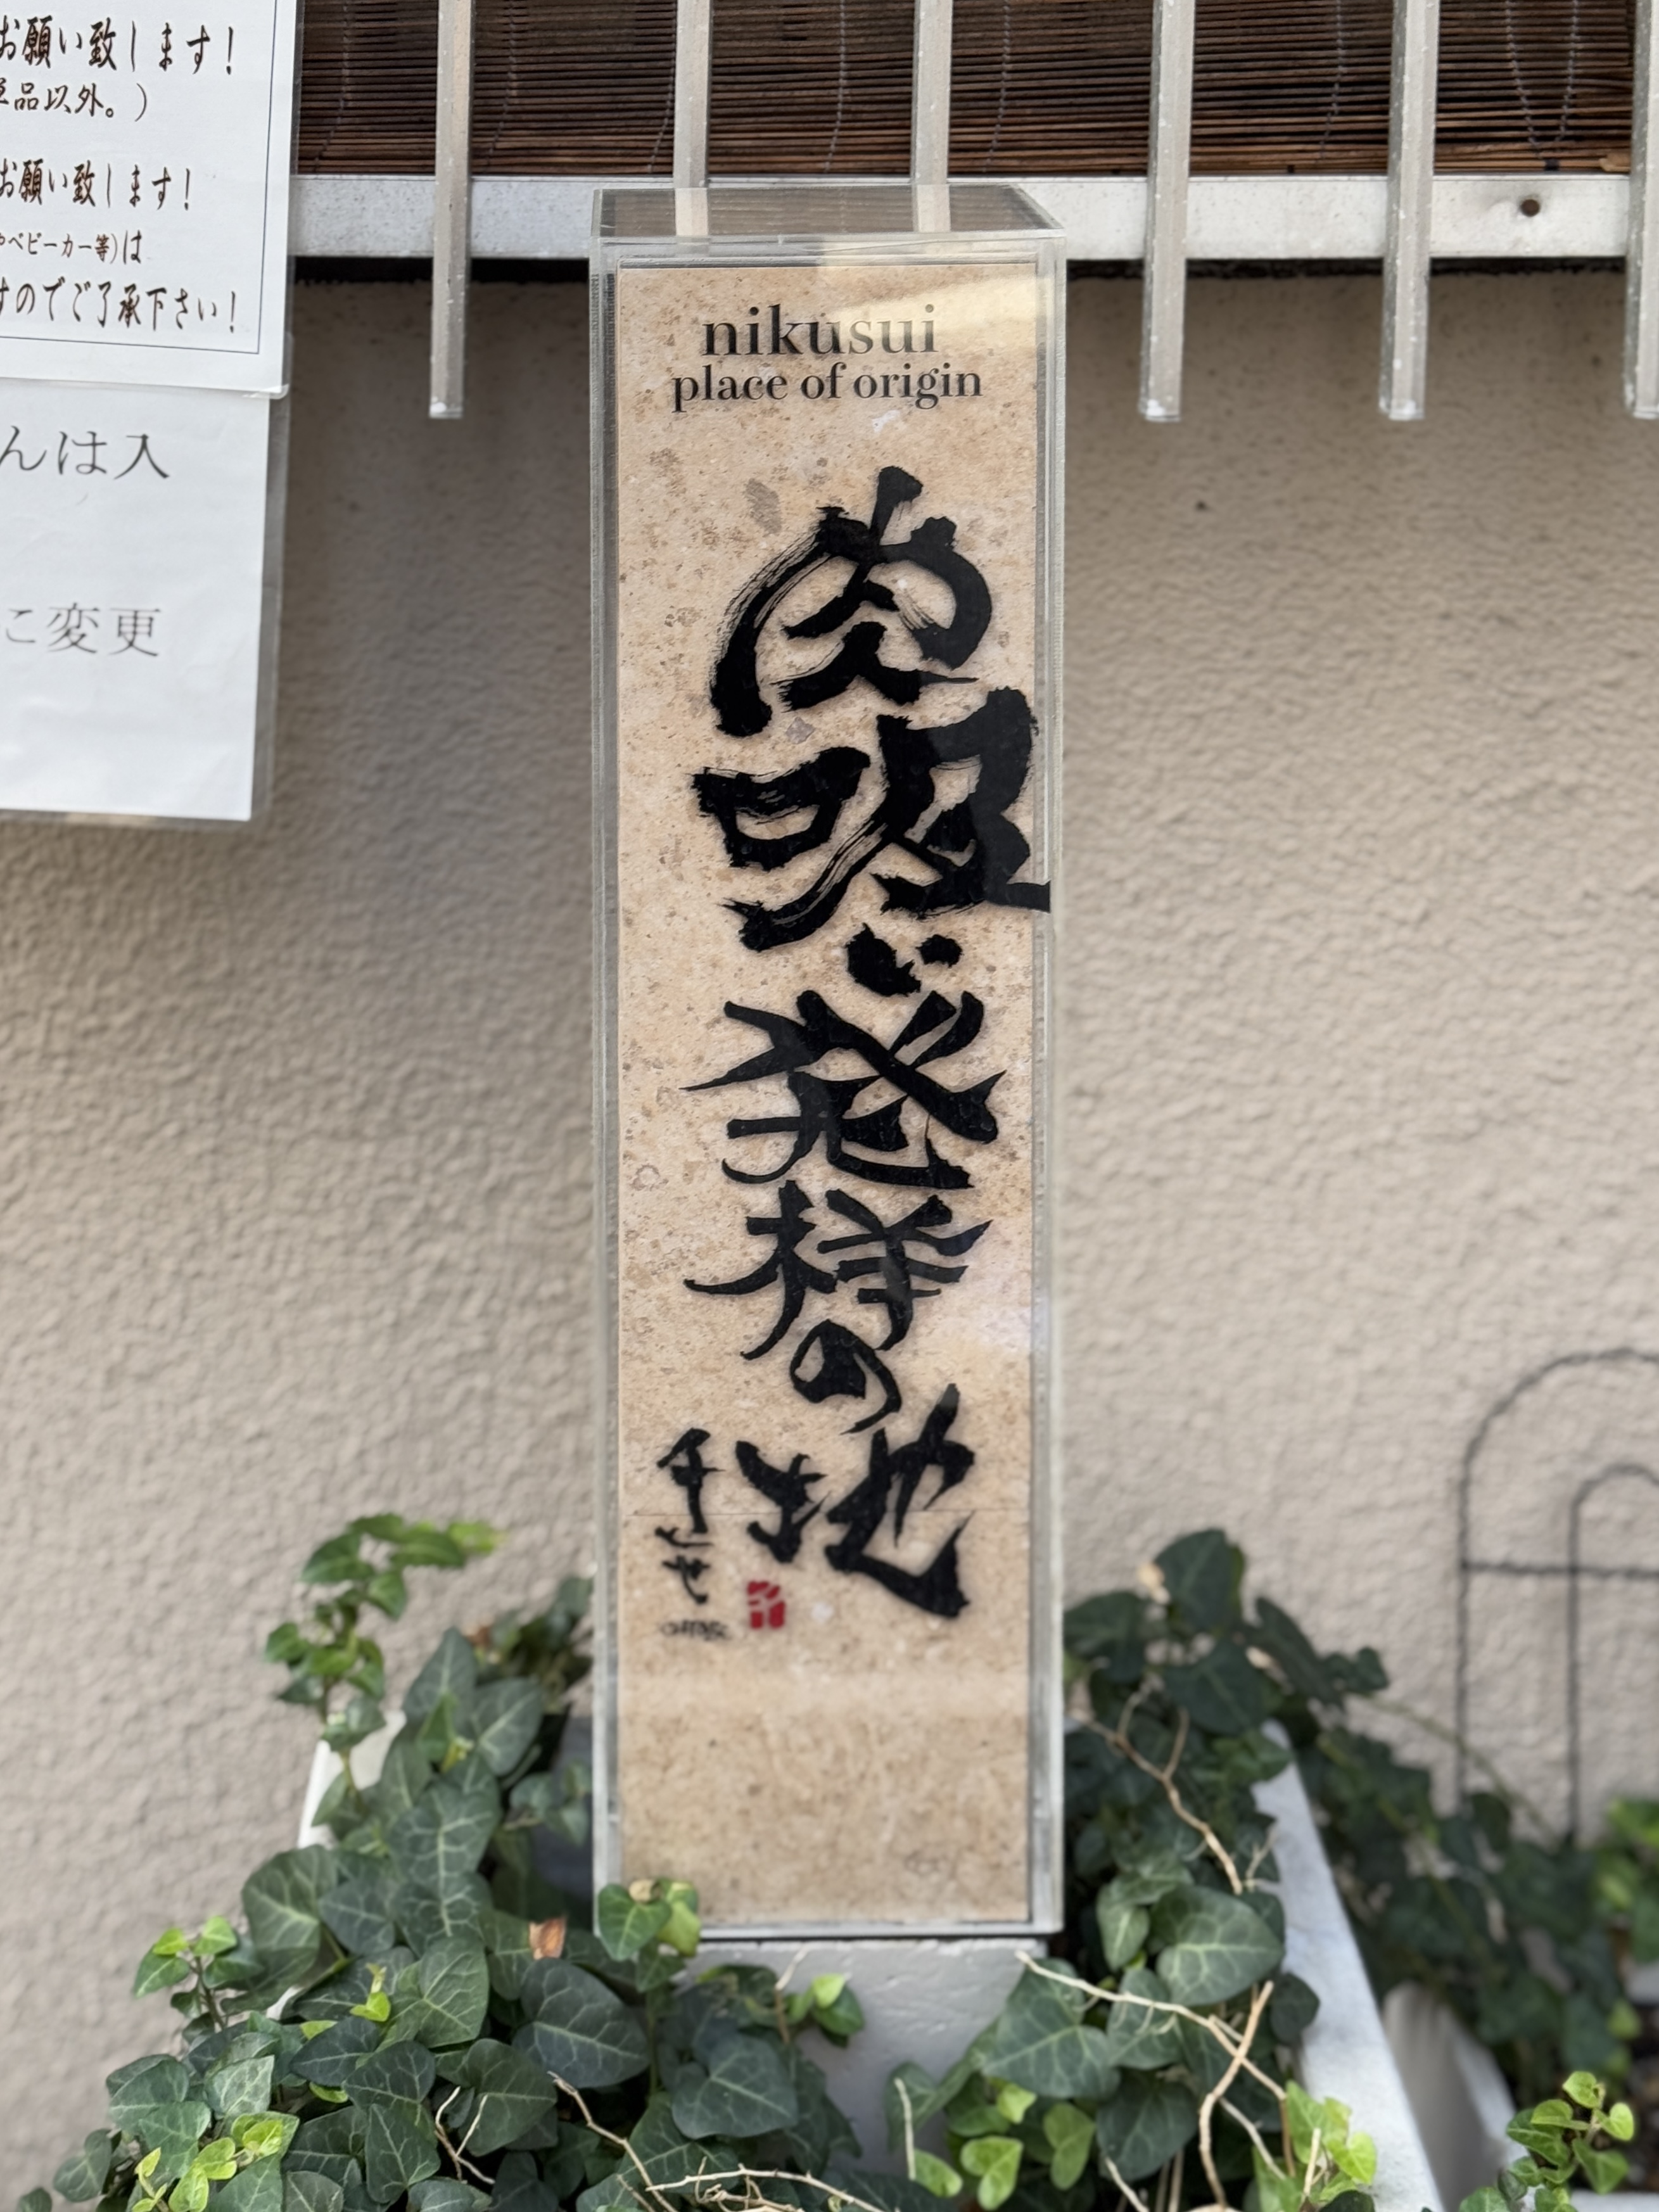 お願い致します！
品以外。）
お願い致します！
やベビーカー等)は
すのでご了承下さい！
んは入
こ変更
nikusui
place of origin
肉吸い発祥の地
千とせ